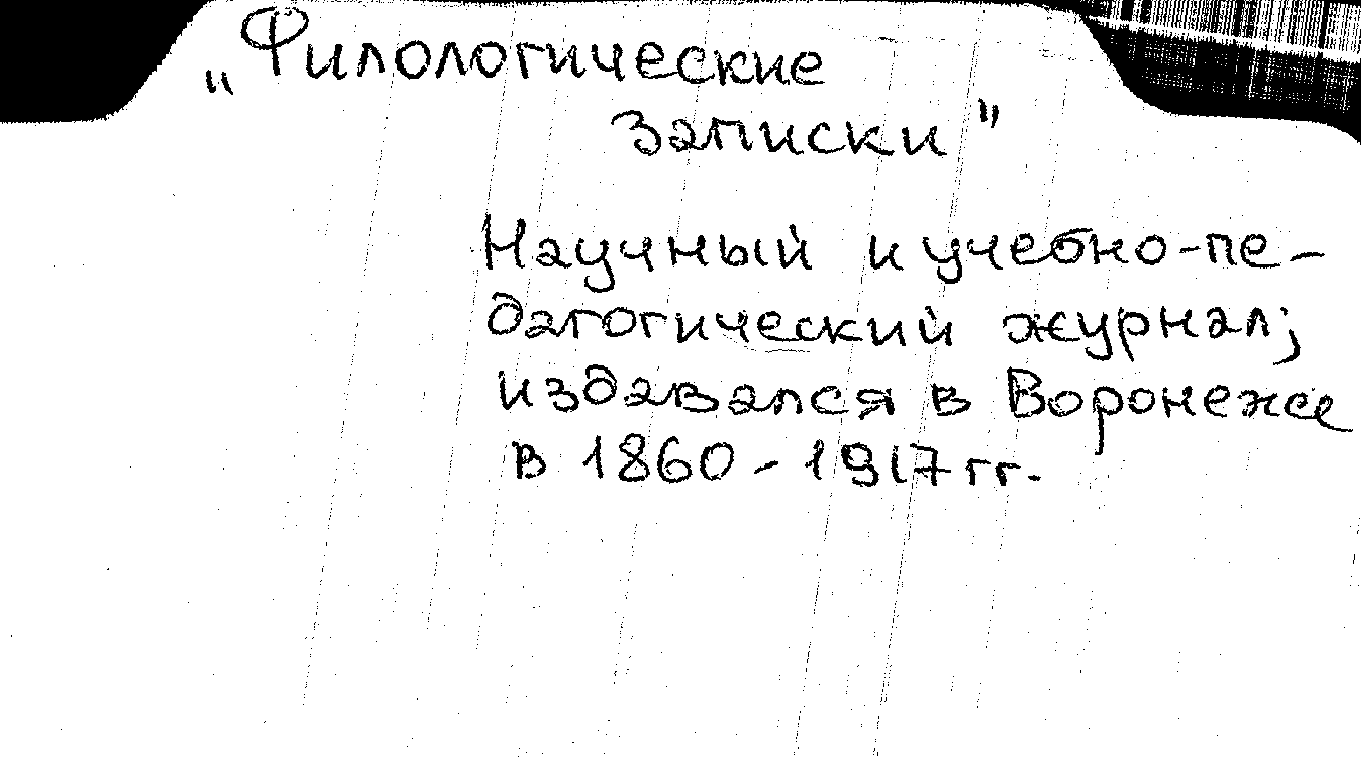 „Филологические
записки"
Научный и учебно-пе-
дагогический журнал;
издавался в Воронеже
в 1860-1917 гг.